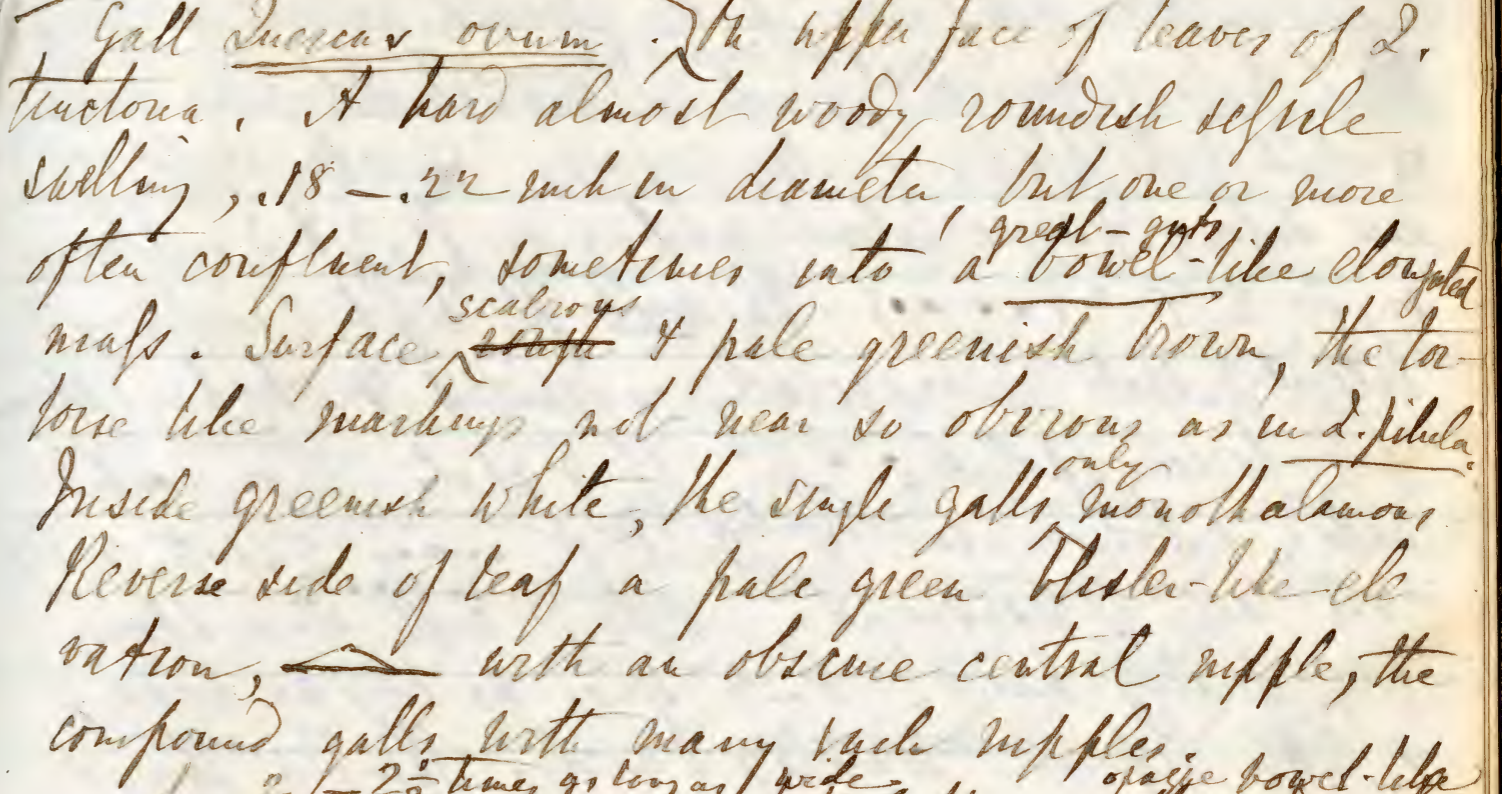 Gall Quercus ovum. On upper face of leaves of Q.
tinctoria. A hard almost woody roundish sessile
swelling, .18 — .22 inch in diameter, but one or more
great-guts
often confluent, sometimes into a bowel-like elongated
scabrous
mass. Surface rough & pale greenish brown, the tor-
toise like markings not near so obvious as in Q. pilula.
only
Inside greenish white, the single galls monothalamous
Reverse side of leaf a pale green blister-like ele
vation, with an obscure central nipple, the
compound galls with many such nipples.
times as long as wide opaque bowel-like